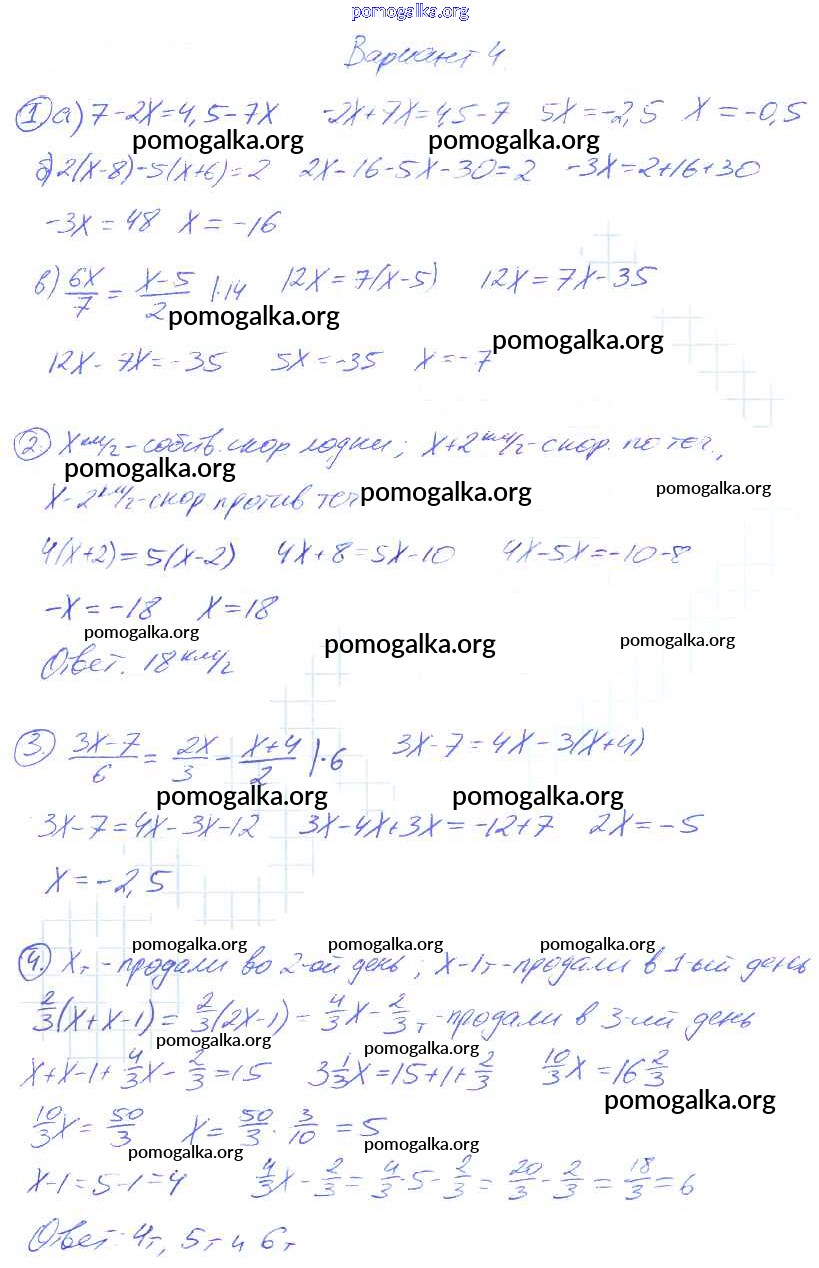 pomogalka.org
Вариант 4
1 а) 7-2x=4,5-7x -2x+7x=4,5-7 5x=-2,5 x=-0,5
pomogalka.org pomogalka.org
б) 2(x-8)-5(x+6)=2 2x-16-5x-30=2 -3x=2+16+30
-3x=48 x=-16
в) 6x/7 = x-5/2 |·14 12x=7(x-5) 12x=7x-35
pomogalka.org pomogalka.org
12x-7x=-35 5x=-35 x=-7
2. x км/ч - собств. скор. лодки; x+2 км/ч - скор. по теч.,
pomogalka.org
x-2 км/ч - скор. против теч
pomogalka.org pomogalka.org
4(x+2)=5(x-2) 4x+8=5x-10 4x-5x=-10-8
-x=-18 x=18
pomogalka.org pomogalka.org pomogalka.org
Ответ. 18 км/ч
3. 3x-7/6 = 2x/3 - x+4/2 |·6 3x-7=4x-3(x+4)
pomogalka.org pomogalka.org
3x-7=4x-3x-12 3x-4x+3x=-12+7 2x=-5
x=-2,5
pomogalka.org pomogalka.org pomogalka.org
4. x т - продали во 2-ой день; x-1 т - продали в 1-ый день
2/3(x+x-1)=2/3(2x-1)=4/3x-2/3 т - продали в 3-ий день
pomogalka.org pomogalka.org
x+x-1+4/3x-2/3=15 3 1/3x=15+1+2/3 10/3x=16 2/3
pomogalka.org
10/3x=50/3 x=50/3·3/10=5
pomogalka.org pomogalka.org
x-1=5-1=4 4/3x-2/3=4/3·5-2/3=20/3-2/3=18/3=6
Ответ: 4 т, 5 т и 6 т